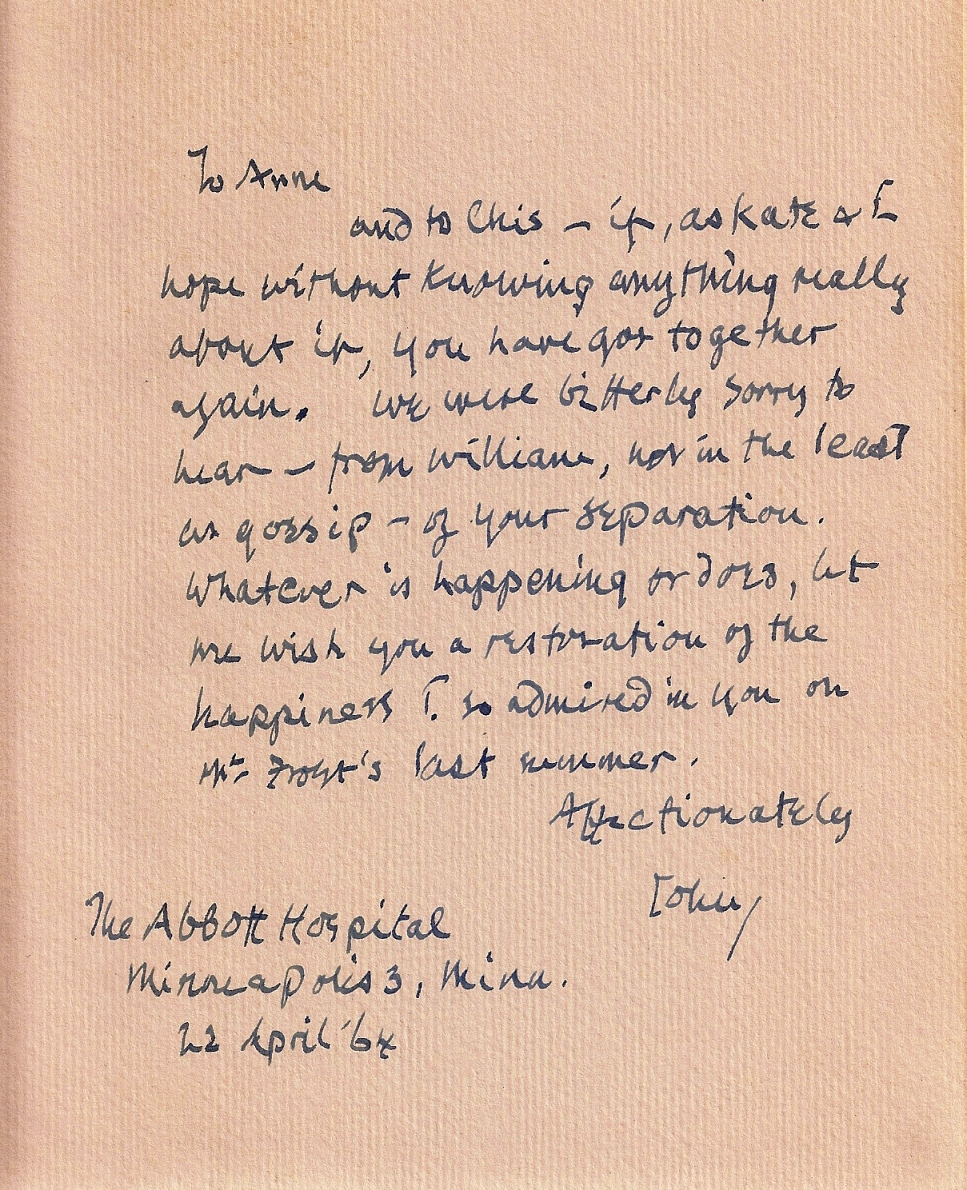 To Anne
and to Chis – if, as Kate & I
hope without knowing anything really
about it, you have got together
again. We were bitterly sorry to
hear – from William, not in the least
as gossip – of your separation.
Whatever is happening or does, let
me wish you a restoration of the
happiness I so admired in you on
Mr Frost's last summer.
Affectionately
John
The Abbott Hospital
Minneapolis 3, Minn.
22 April '64